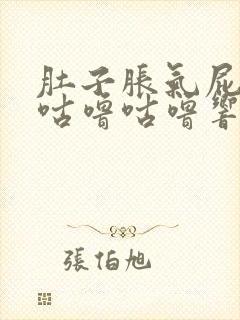 肚子脹氣屁
咕嚕咕嚕響
張伯旭